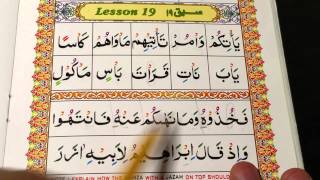 Lesson 19 سبق ۱۹
يَأْتِكُمْ وَأْمُرْ تَأْتِيهِمْ مَأْوٰهُمْ كَأْسًا
يَأْبَ نَأْتِ قَرَأْتَ بَأْسٍ مَأْكُوْلٍ
فَخُذُوْهُ وَمَا نَهٰىكُمْ عَنْهُ فَانْتَهُوْا
وَاِذْ قَالَ اِبْرَاهِيْمُ لِاَبِيْهِ اٰزَرَ
EXPLAIN HOW THE HAMZA WITH A JAZAM ON TOP SHOULD